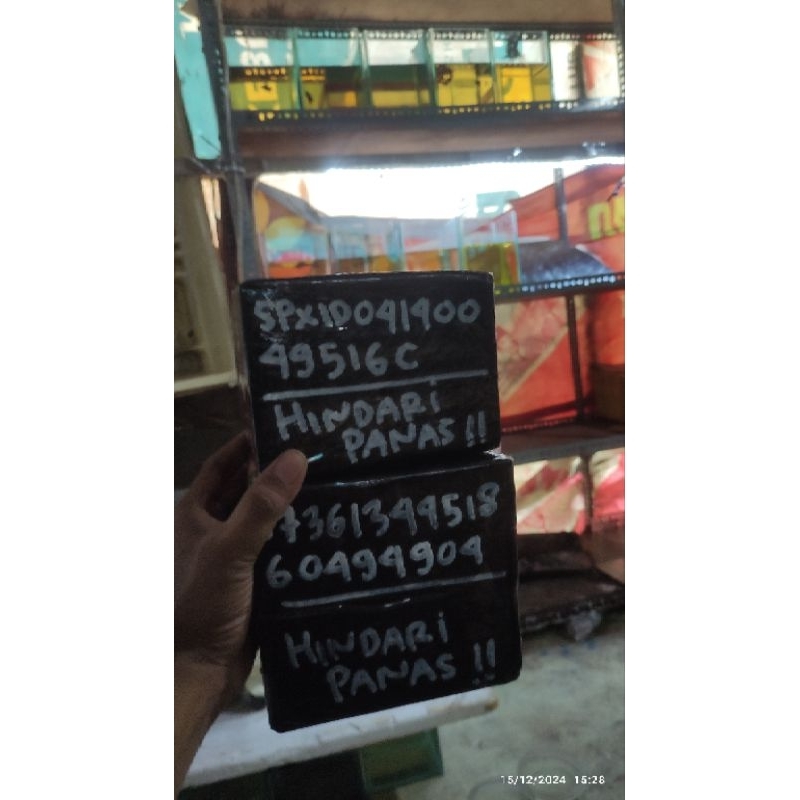 SPXID041400
49516C
HINDARI
PANAS !!
7361344518
60494904
HINDARI
PANAS !!
15/12/2024 15:28